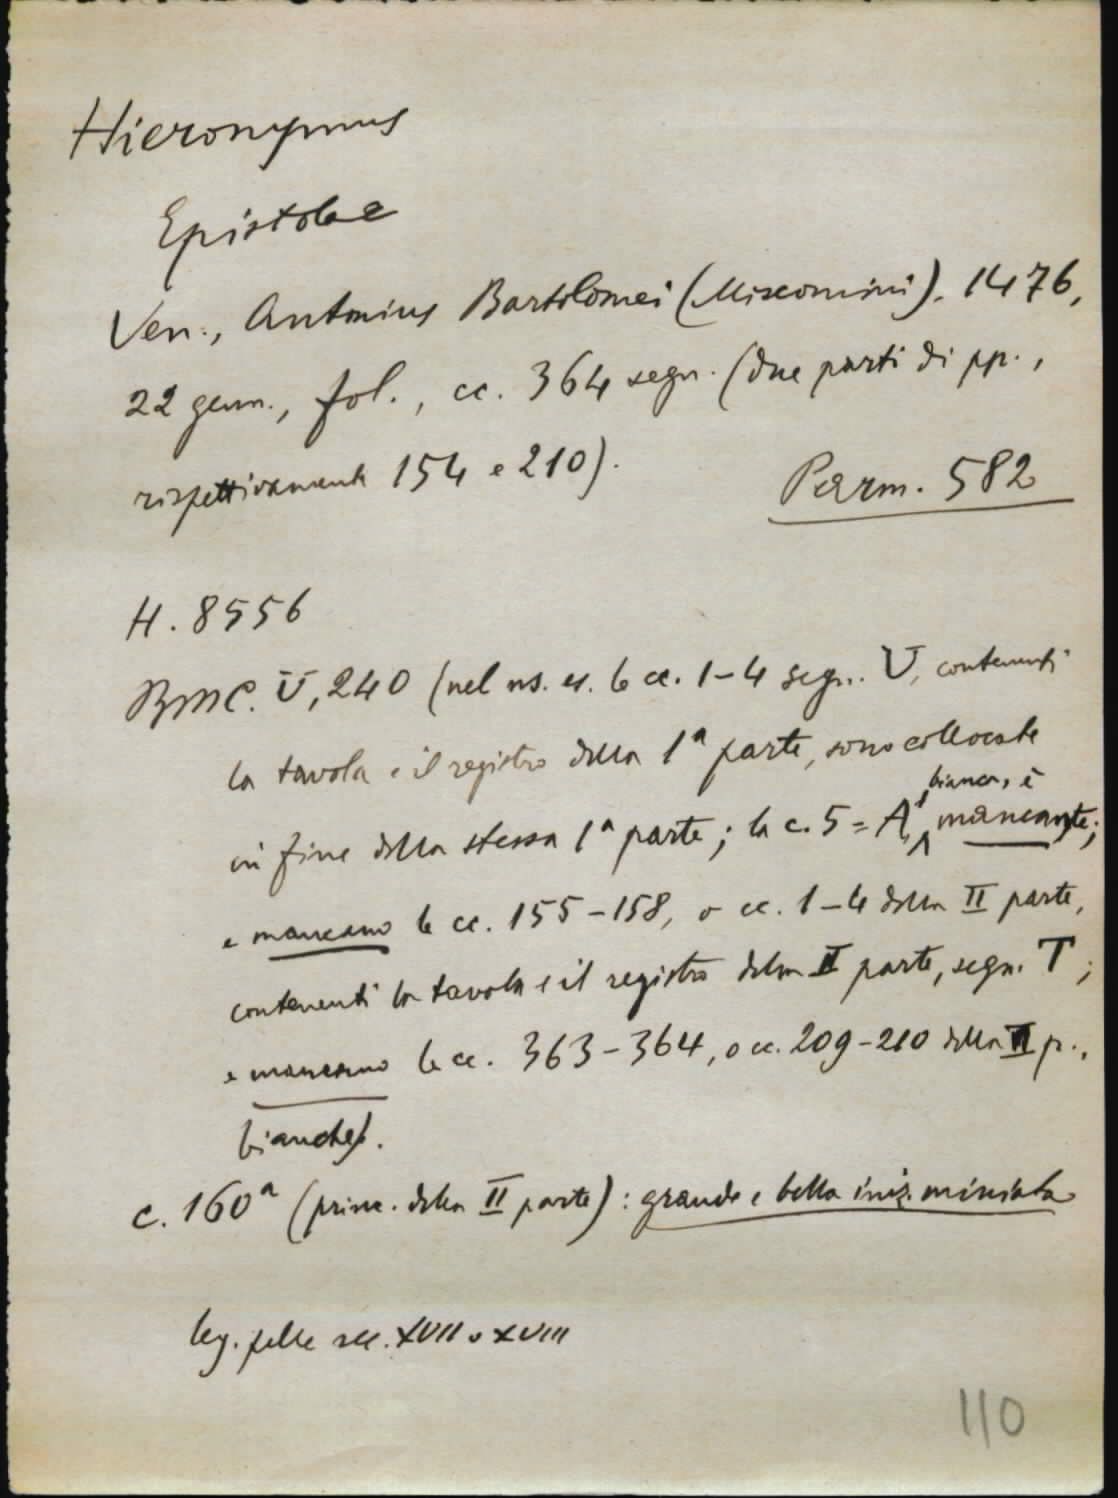 Hieronymus
Epistolae
Ven., Antonius Bartolomei (Miscomini), 1476,
22 genn., fol., cc. 364 segn. (due parti di pp.,
rispettivamente 154 e 210).
Perm. 582
H. 8556
BMC. V, 240 (nel ns. es. le cc. 1-4 segn. V, contenenti
la tavola e il registro della 1ª parte, sono collocate
bianca, è
in fine della stessa 1ª parte; la c. 5 = A1, mancante;
e mancano le cc. 155-158, o cc. 1-4 della II parte,
contenenti la tavola e il registro della II parte, segn. T;
e mancano le cc. 363-364, o cc. 209-210 della II p.,
bianche).
c. 160ª (princ. della II parte): grande e bella iniz. miniata
leg. pelle sec. XVII o XVIII
110